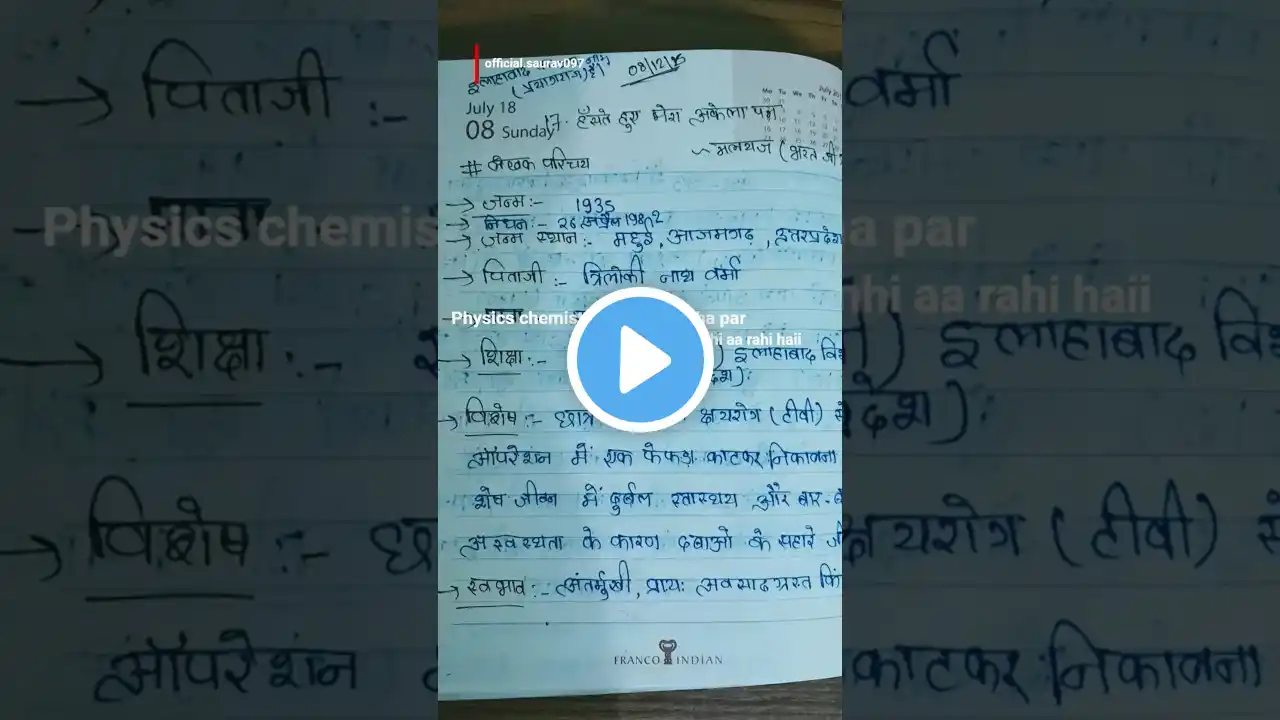 official.saurav097
इलाहाबाद
(प्रयागराज) है।
08/12/25
July 18
08 Sunday
17. हँसते हुए मेरा अकेला पन
~ मलयज (भरत जी
# लेखक परिचय
→ जन्म :- 1935
→ निधन :- 26 अप्रैल 1982
→ जन्म स्थान :- महुई, आजमगढ़, उत्तरप्रदेश
→ पिताजी :- त्रिलोकी नाथ वर्मा
Physics chemis
a par
hi aa rahi haii
→ शिक्षा :- ) इलाहाबाद वि
देश) :
→ विशेष :- छात्र क्षयरोग (टीबी) से
ऑपरेशन में एक फेफड़ा काटकर निकालना
शेष जीवन में दुर्बल स्वास्थय और बार-
अस्वस्थता के कारण दवाओ के सहारे जी
→ स्वभाव :- अंतर्मुखी, प्रायः अवसादग्रस्त किं
FRANCO INDIAN